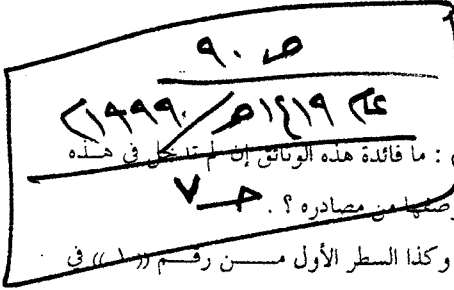 ص ٩٠
عام ١٤١٩ه/١٩٩٩م
: ما فائدة هذه الوثائق إن لم تدخل في هذه
حـ ٧
وصفها من مصادره ؟ .
وكذا السطر الأول مـــن رقـــم «١» في